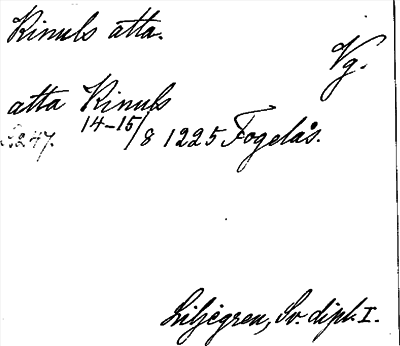 Kinuls átta.
Vg.
atta Kinuls
S. 247. 14-15/8 1225 Fogelås.
Liljegren, Sv. dipl. I.